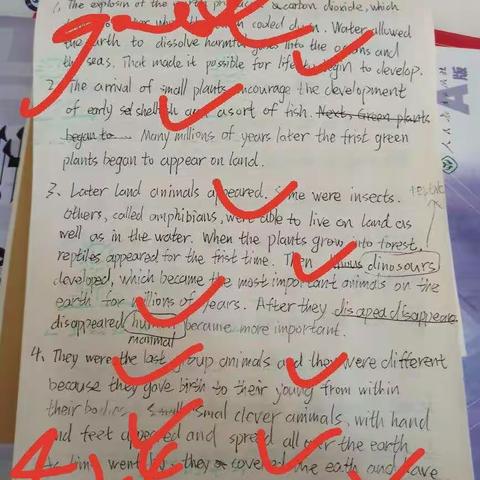 great
1. The explosin of the earth produced carbon dioxide, which
cooled down. Water allowed
the earth to dissolve harmful gases into the oceans and
the seas. That made it possible for life to begin to develop.
2. The arrival of small plants encourage the development
of early shellfish and asort of fish. Next, Green plants
began to... Many millions of years later the frist green
plants began to appear on land.
3、Later land animals appeared. Some were insects.
Others, called amphibians, were able to live on land as
well as in the water. When the plants grow into forest,
reptiles appeared for the frist time. Then dinosours
developed, which became the most important animals on the
earth for millions of years. After they disaped disappeare
disappeared human became more important.
mammal
4、They were the last group animals and they were different
because they gave birth to their young from within
their bodies. Small small clever animals, with hand
and feet appeared and spread all over the earth
time went by, they covered the eath and have
人民教育出版社
A版